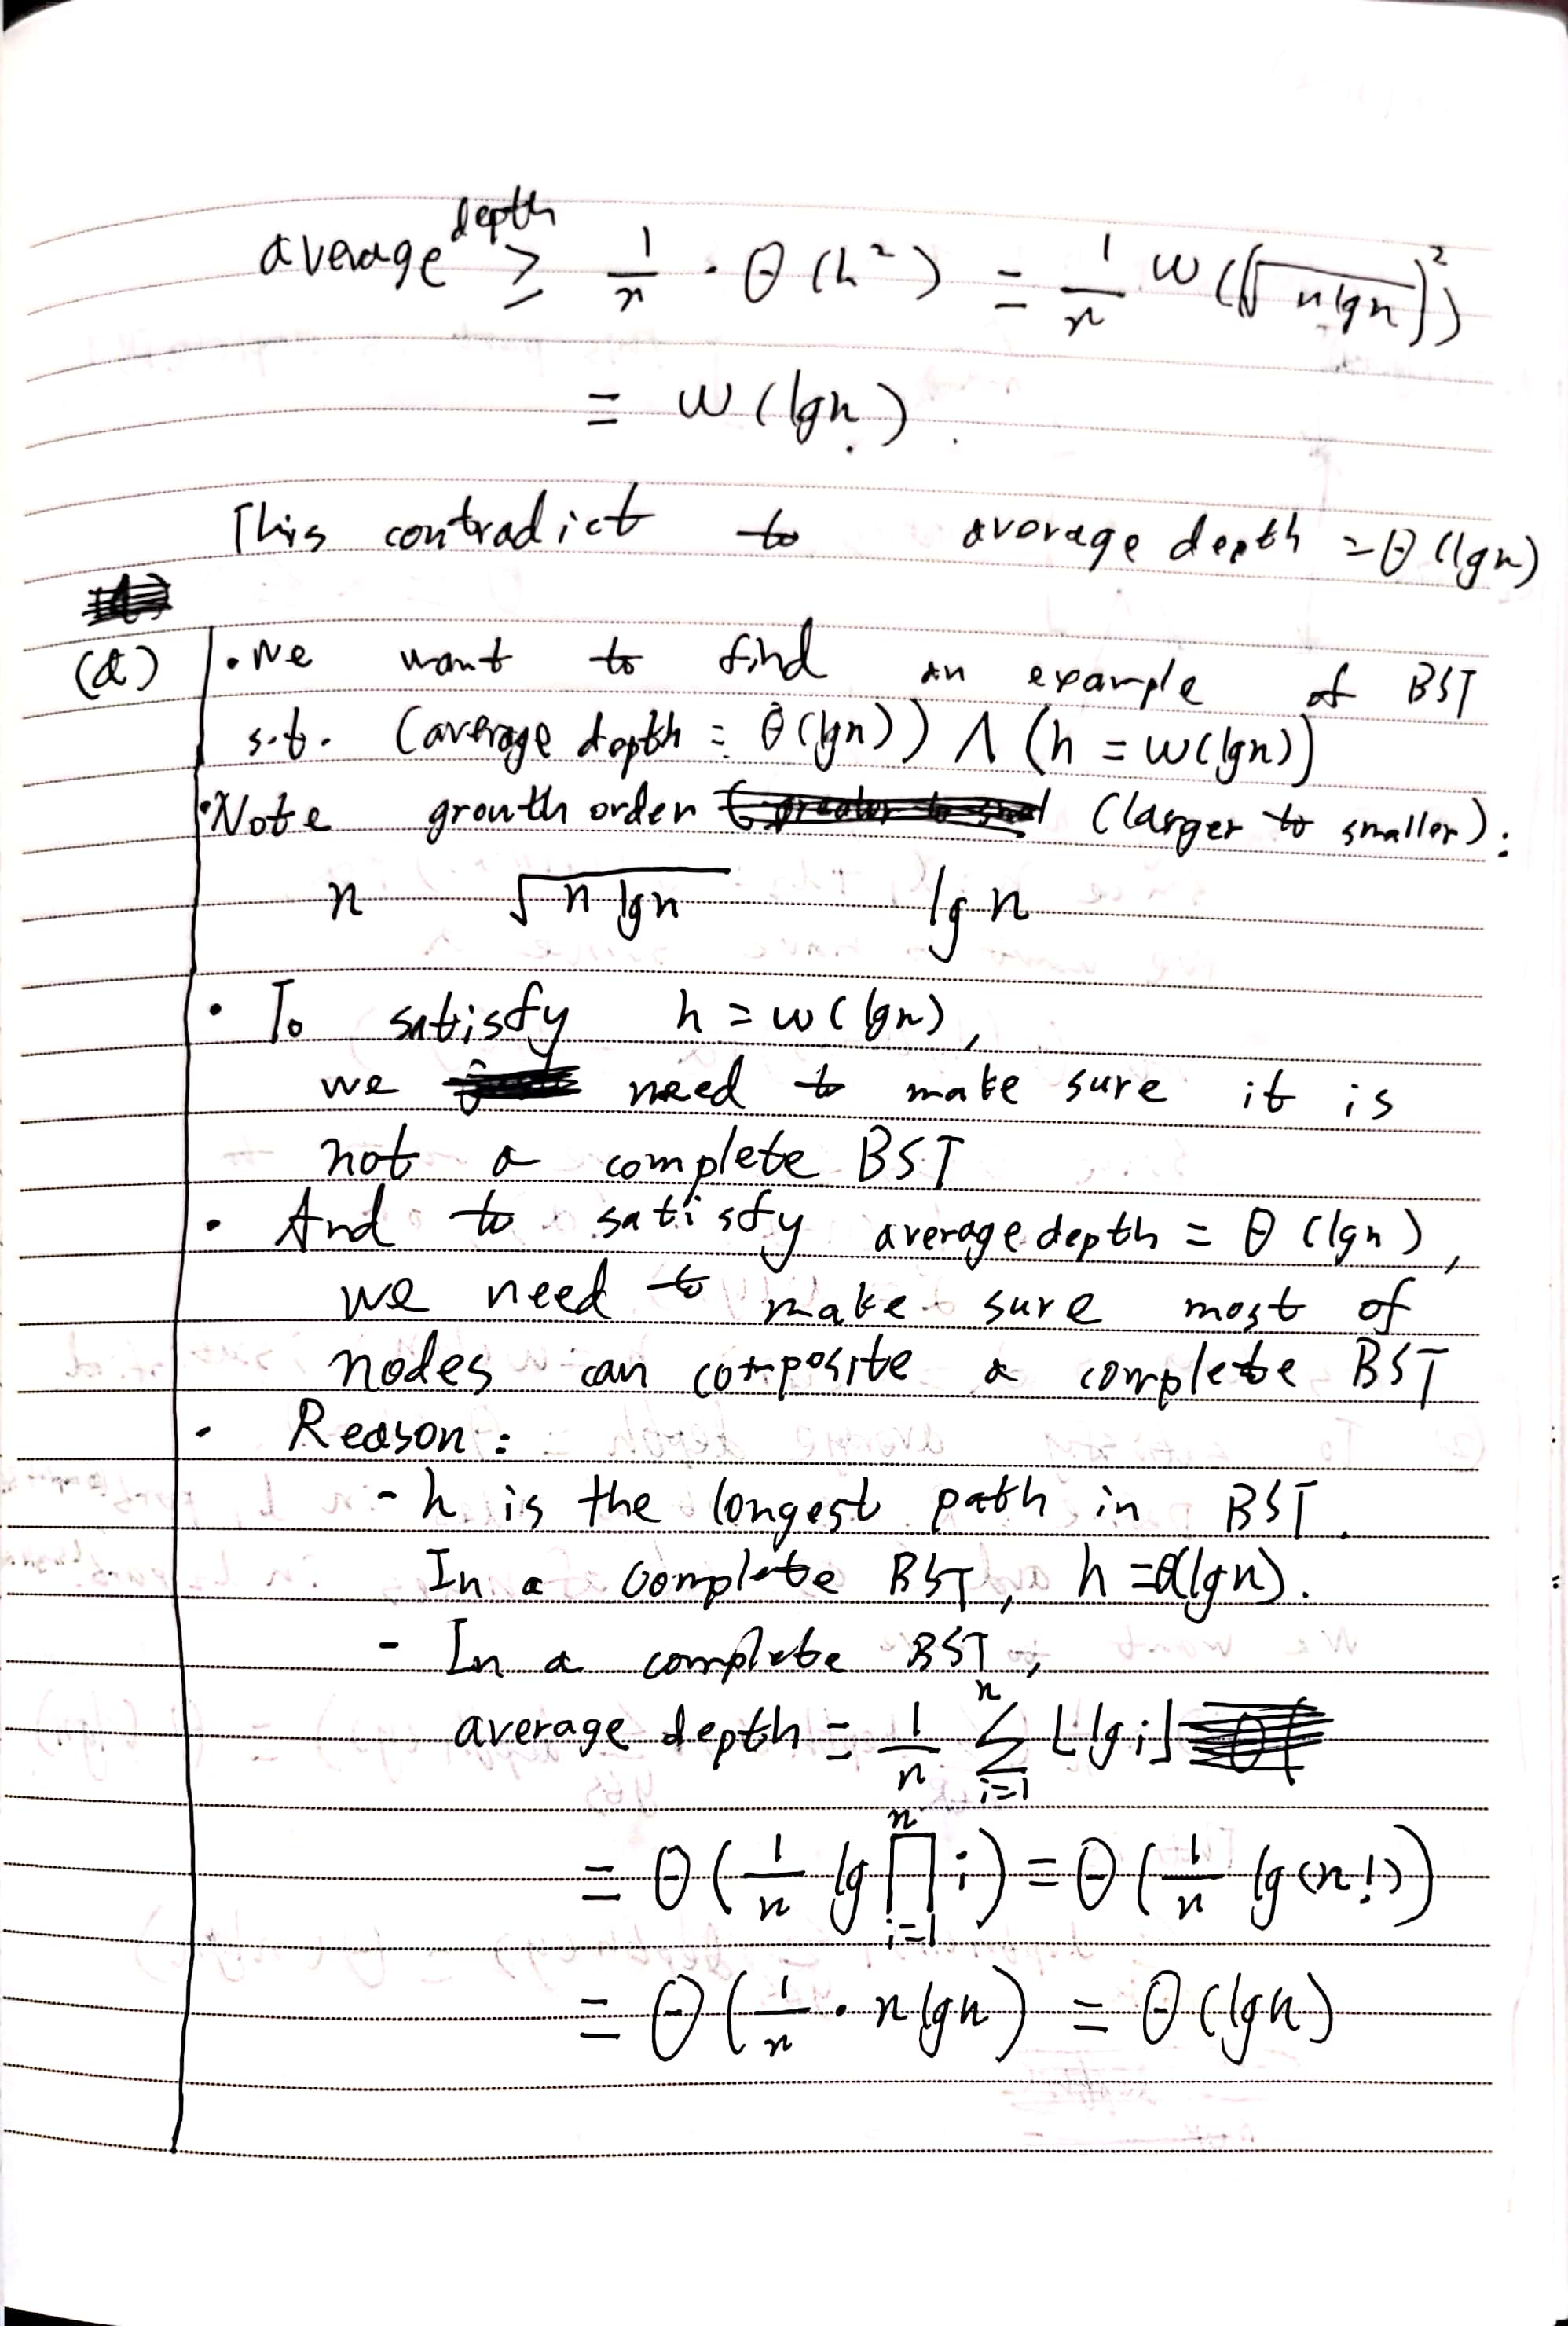 average depth ≥ 1/n · θ(h²) = 1/n ω((√(n lg n))²)
= ω(lg n).
This contradict to average depth = θ(lg n)
(2) • We want to find an example of BST
s.t. (average depth = θ(lg n)) ∧ (h = ω(lg n))
• Note growth order (larger to smaller):
n √(n lg n) lg n
• To satisfy h = ω(lg n),
we need to make sure it is
not a complete BST
• And to satisfy average depth = θ(lg n),
we need to make sure most of
nodes can composite a complete BST
• Reason:
- h is the longest path in BST.
In a complete BST, h = θ(lg n).
- In a complete BST,
average depth = 1/n Σ_{i=1}^{n} ⌊lg i⌋
= θ(1/n lg ∏_{i=1}^{n} i) = θ(1/n lg(n!))
= θ(1/n · n lg n) = θ(lg n)